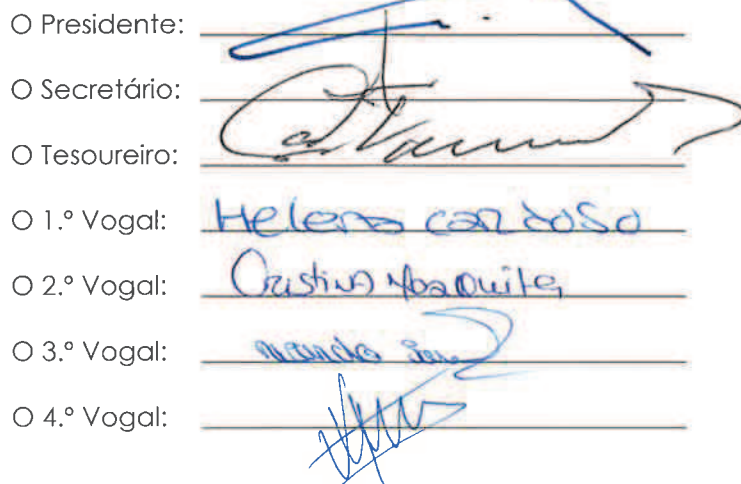 O Presidente:
O Secretário:
O Tesoureiro:
O 1.º Vogal: Helena Cardoso
O 2.º Vogal: Cristina Mosquita
O 3.º Vogal:
O 4.º Vogal: